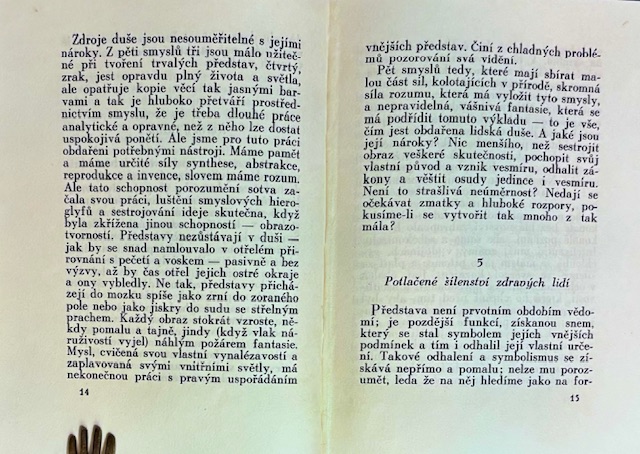 Zdroje duše jsou nesouměřitelné s jejími
nároky. Z pěti smyslů tři jsou málo užiteč-
né při tvoření trvalých představ, čtvrtý,
zrak, jest opravdu plný života a světla,
ale opatřuje kopie věcí tak jasnými bar-
vami a tak je hluboko přetváří prostřed-
nictvím smyslu, že je třeba dlouhé práce
analytické a opravné, než z něho lze dostat
uspokojivá ponětí. Ale jsme pro tuto práci
obdařeni potřebnými nástroji. Máme paměť
a máme určité síly synthese, abstrakce,
reprodukce a invence, slovem máme rozum.
Ale tato schopnost porozumění sotva za-
čala svou práci, luštění smyslových hiero-
glyfů a sestrojování ideje skutečna, když
byla zkřížena jinou schopností — obrazo-
tvorností. Představy nezůstávají v duši —
jak by se snad namlouvalo v otřelém při-
rovnání s pečetí a voskem — pasivně a bez
výzvy, až by čas otřel jejich ostré okraje
a ony vybledly. Ne tak, představy přichá-
zejí do mozku spíše jako zrní do zoraného
pole nebo jako jiskry do sudu se střelným
prachem. Každý obraz stokrát vzroste, ně-
kdy pomalu a tajně, jindy (když vlak ná-
ruživostí vyjel) náhlým požárem fantasie.
Mysl, cvičená svou vlastní vynalézavostí a
zaplavovaná svými vnitřními světly, má
nekonečnou práci s pravým uspořádáním
14
vnějších představ. Činí z chladných problé-
mů pozorování svá vidění.
Pět smyslů tedy, které mají sbírat ma-
lou část sil, kolotajících v přírodě, skromná
síla rozumu, která má vyložit tyto smysly,
a nepravidelná, vášnivá fantasie, která se
má podřídit tomuto výkladu — to je vše,
čím jest obdařena lidská duše. A jaké jsou
její nároky? Nic menšího, než sestrojit
obraz veškeré skutečnosti, pochopit svůj
vlastní původ a vznik vesmíru, odhalit zá-
kony a věštit osudy jedince i vesmíru.
Není to strašlivá neúměrnost? Nedají se
očekávat zmatky a hluboké rozpory, po-
kusíme-li se vytvořit tak mnoho z tak
mála?
5
Potlačené šílenství zdravých lidí
Představa není prvotním obdobím vědo-
mí; je pozdější funkcí, získanou snem,
který se stal symbolem jejích vnějších
podmínek a tím i odhalil její vlastní urče-
ní. Takové odhalení a symbolismus se zí-
skává nepřímo a pomalu; nelze mu poroz-
umět, leda že na něj hledíme jako na for-
15